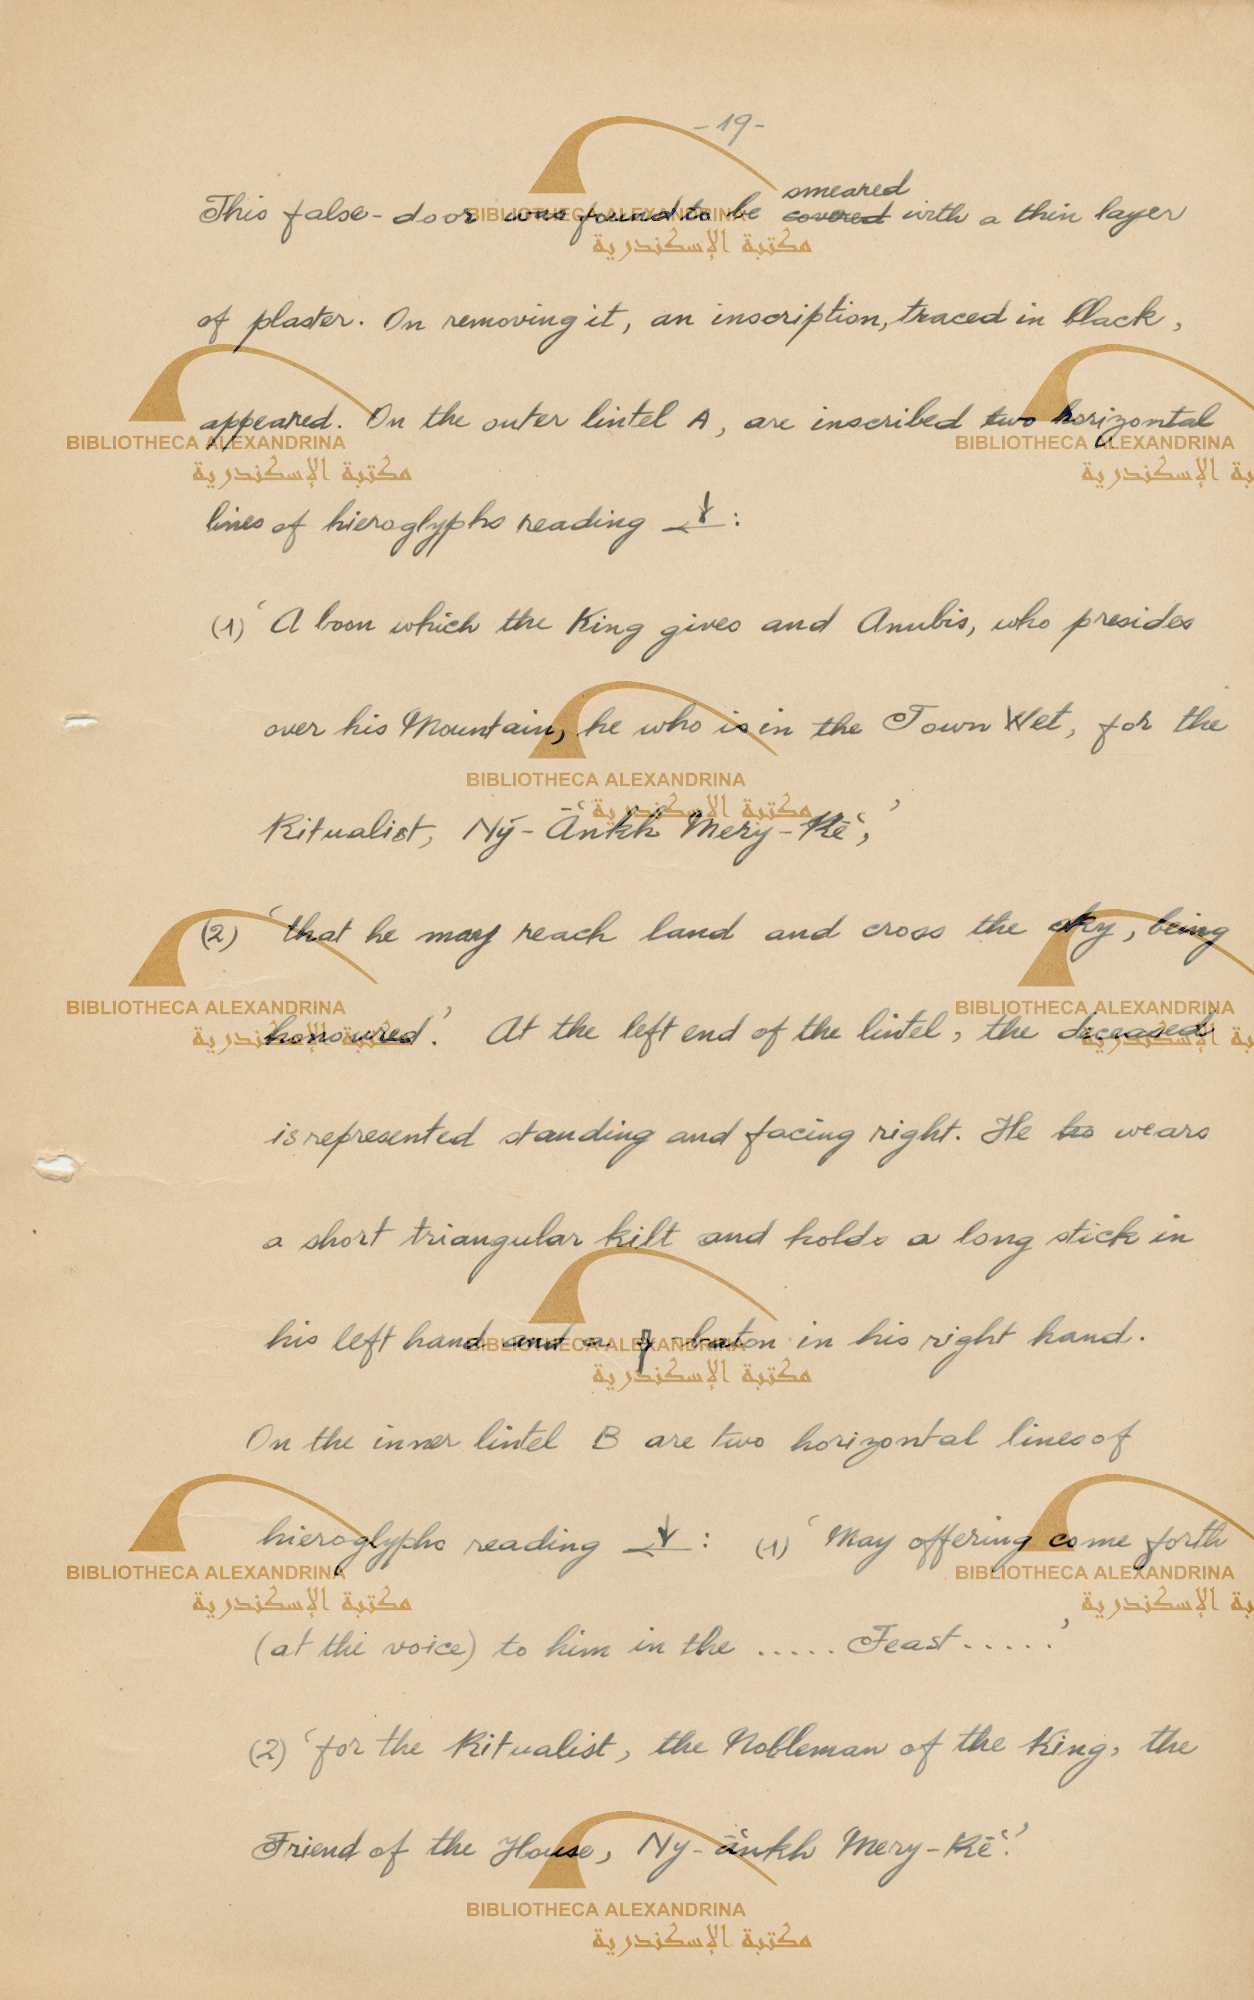 -19-
This false-door was found to be smeared covered with a thin layer
of plaster. On removing it, an inscription, traced in black,
appeared. On the outer lintel A, are inscribed two horizontal
lines of hieroglyphs reading :
(1) ‘A boon which the King gives and Anubis, who presides
over his Mountain, he who is in the Town Wet, for the
Ritualist, Ny-‘Ānkh Mery-Rē‘,’
(2) ‘that he may reach land and cross the sky, being
honoured’. At the left end of the lintel, the deceased
is represented standing and facing right. He wears
a short triangular kilt and holds a long stick in
his left hand and a -baton in his right hand.
On the inner lintel B are two horizontal lines of
hieroglyphs reading : (1) ‘May offering come forth
(at the voice) to him in the ..... Feast .....’
(2) ‘for the Ritualist, the Nobleman of the King, the
Friend of the House, Ny-‘ānkh Mery-Rē‘.’
BIBLIOTHECA ALEXANDRINA
مكتبة الإسكندرية